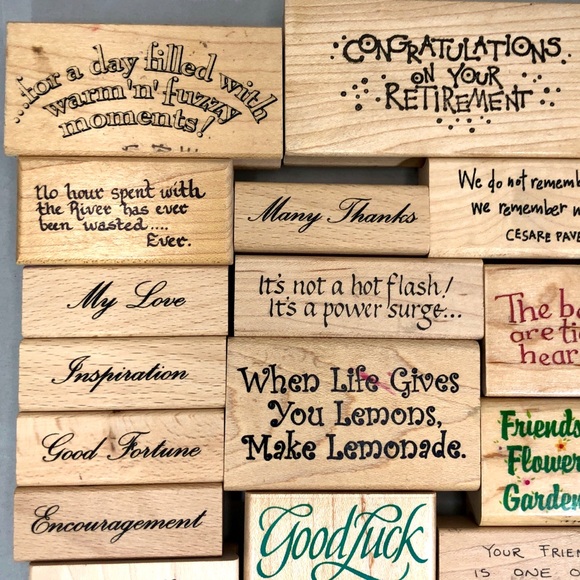 ...for a day filled with
warm 'n' fuzzy
moments!
CONGRATULATIONS
ON YOUR
RETIREMENT
No hour spent with
the River has ever
been wasted....
Ever.
Many Thanks
We do not
We remember
CESARE
My Love
It's not a hot flash!
It's a power surge...
The
are
Inspiration
When Life Gives
You Lemons,
Make Lemonade.
Good Fortune
Friends
Encouragement
Good Luck
YOUR
IS ONE